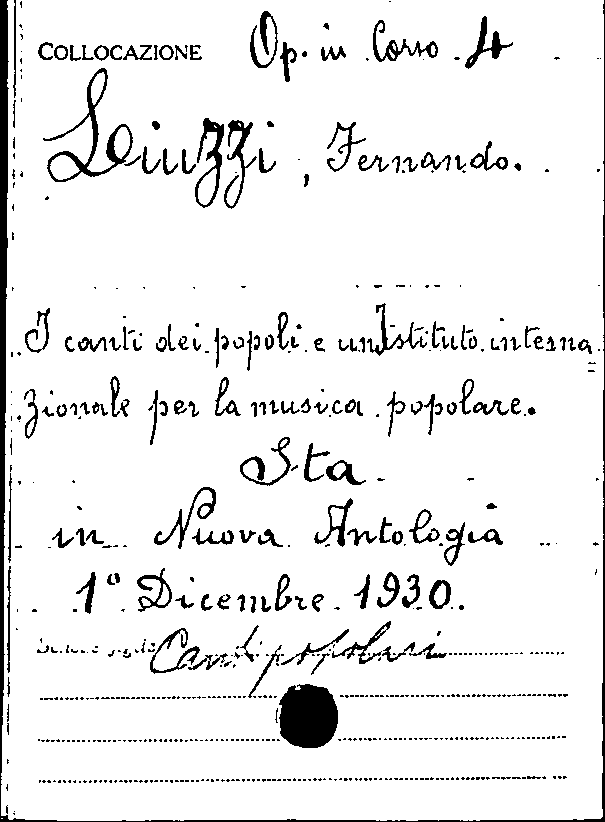 COLLOCAZIONE Op. in Corso 4
Liuzzi, Fernando.
I canti dei popoli e un Istituto interna
zionale per la musica popolare.
Sta
in Nuova Antologia
1° Dicembre 1930.
Canti popolari